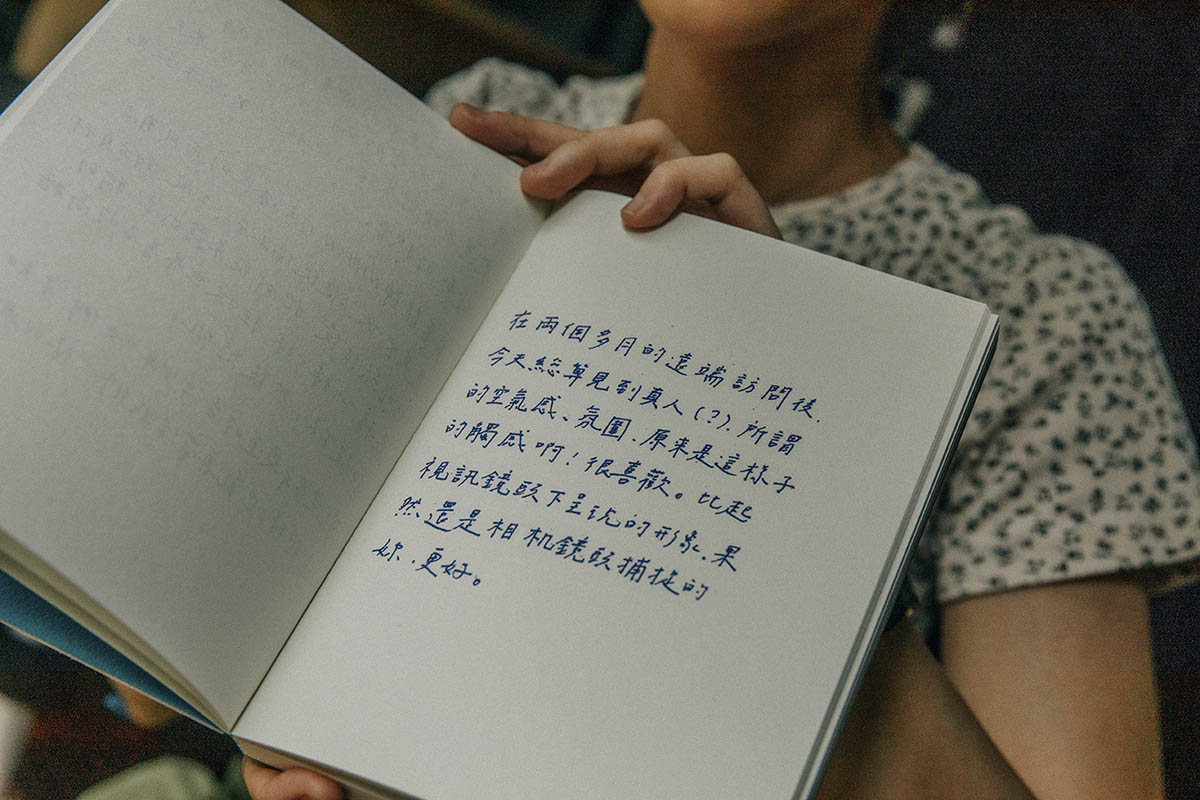 在兩個多月的遠端訪問後、
今天總算見到真人(?)、所謂
的空氣感、氛圍、原來是這樣子
的觸感啊!很喜歡。比起
視訊鏡頭下呈現的形象、果
然還是相机鏡頭捕捉的
妳、更好。